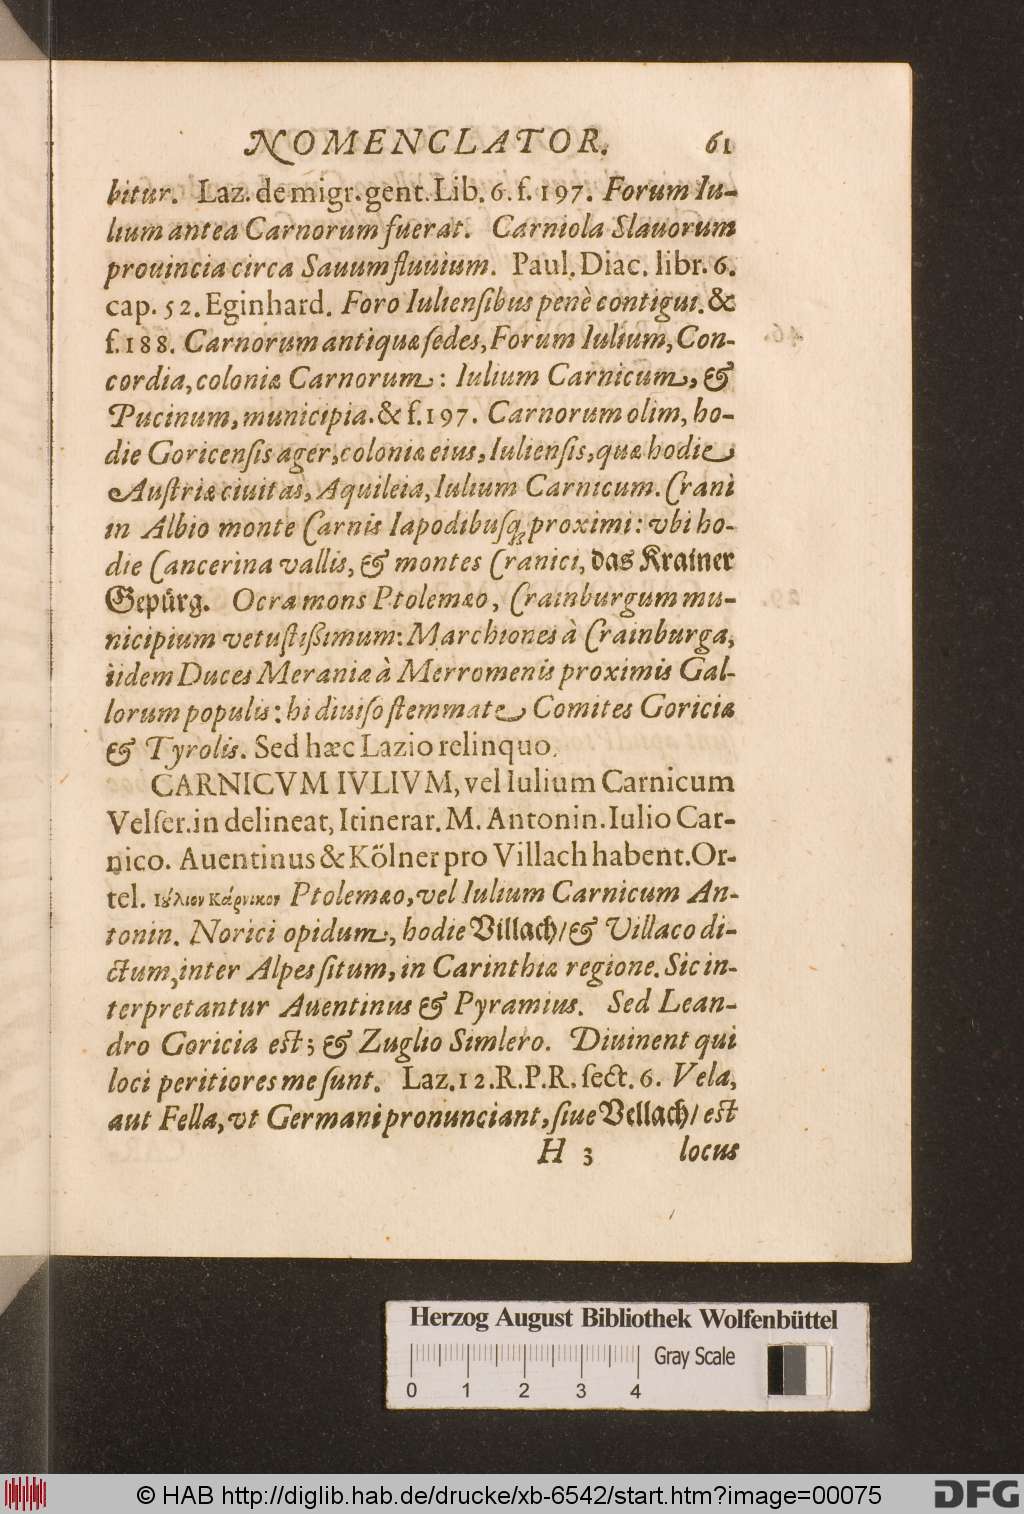 NOMENCLATOR. 61
bitur. Laz. de migr. gent. Lib. 6. f. 197. Forum Iu-
lium antea Carnorum fuerat. Carniola Slauorum
prouincia circa Sauum fluuium. Paul. Diac. libr. 6.
cap. 52. Eginhard. Foro Iuliensibus penè contigui. &
f. 188. Carnorum antiquæ sedes, Forum Iulium, Con-
cordia, coloniæ Carnorum: Iulium Carnicum, &
Pucinum, municipia. & f. 197. Carnorum olim, ho-
die Goricensis ager, coloniæ eius, Iuliensis, quæ hodie
Austriæ ciuitas, Aquileia, Iulium Carnicum. Crani
in Albio monte Carnis Iapodibusq₃ proximi: vbi ho-
die Cancerina vallis, & montes Cranici, das Krainer
Gepürg. Ocra mons Ptolemæo, Crainburgum mu-
nicipium vetustißimum: Marchiones à Crainburga,
iidem Duces Meraniæ à Merromenis proximis Gal-
lorum populis: hi diuiso stemmate Comites Goriciæ
& Tyrolis. Sed hæc Lazio relinquo.
CARNICVM IVLIVM, vel Iulium Carnicum
Velser. in delineat, Itinerar. M. Antonin. Iulio Car-
nico. Auentinus & Kölner pro Villach habent. Or-
tel. Ιȣ́λιον Κάρνικον Ptolemæo, vel Iulium Carnicum An-
tonin. Norici opidum, hodie Villach/ & Villaco di-
ctum, inter Alpes situm, in Carinthiæ regione. Sic in-
terpretantur Auentinus & Pyramius. Sed Lean-
dro Goricia est; & Zuglio Simlero. Diuinent qui
loci peritiores me sunt. Laz. 12. R. P. R. sect. 6. Vela,
aut Fella, vt Germani pronunciant, siue Vellach/ est
H 3 locus
Herzog August Bibliothek Wolfenbüttel
Gray Scale
0 1 2 3 4
© HAB http://diglib.hab.de/drucke/xb-6542/start.htm?image=00075
DFG